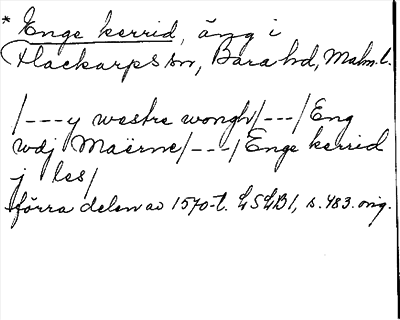 * Enge kerrid, äng i
Flackarps sn, Bara hd, Malm. l.
/---y westre wongh/---/Eng
wdj Maërne/---/Enge kerrid
j les/
förra delen av 1570-t. LSLB1, s. 483. orig.